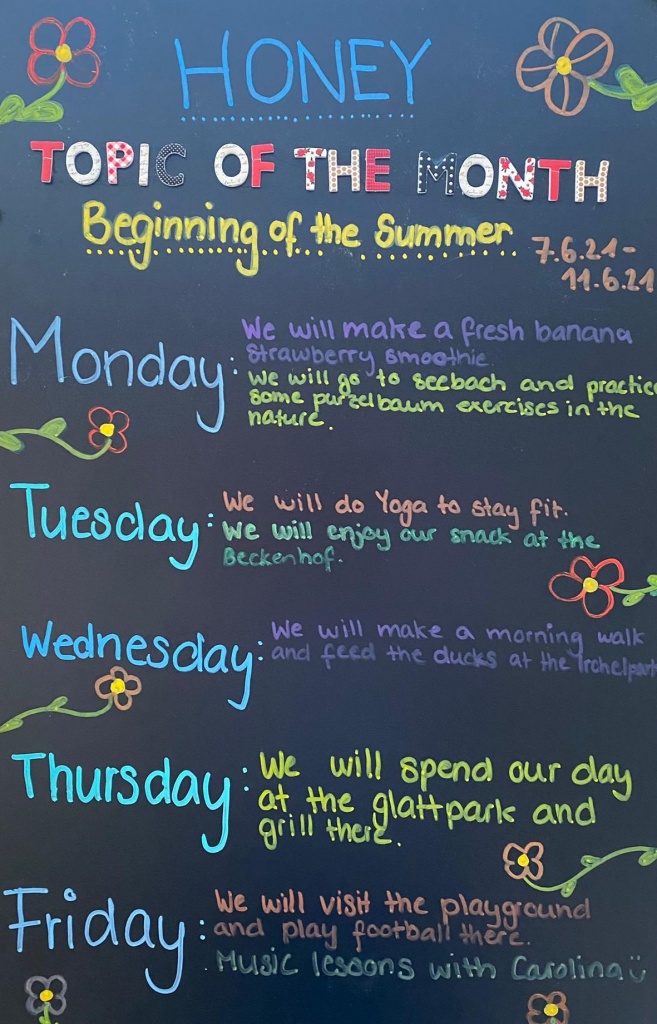 HONEY
TOPIC OF THE MONTH
Beginning of the Summer
7.6.21-
11.6.21
Monday: We will make a fresh banana
strawberry smoothie.
We will go to seebach and practice
some purzelbaum exercises in the
nature.
Tuesday: We will do Yoga to stay fit.
We will enjoy our snack at the
Beckenhof.
Wednesday: We will make a morning walk
and feed the ducks at the Irchelpark
Thursday: We will spend our day
at the glattpark and
grill there.
Friday: We will visit the playground
and play football there.
Music lessons with Carolina